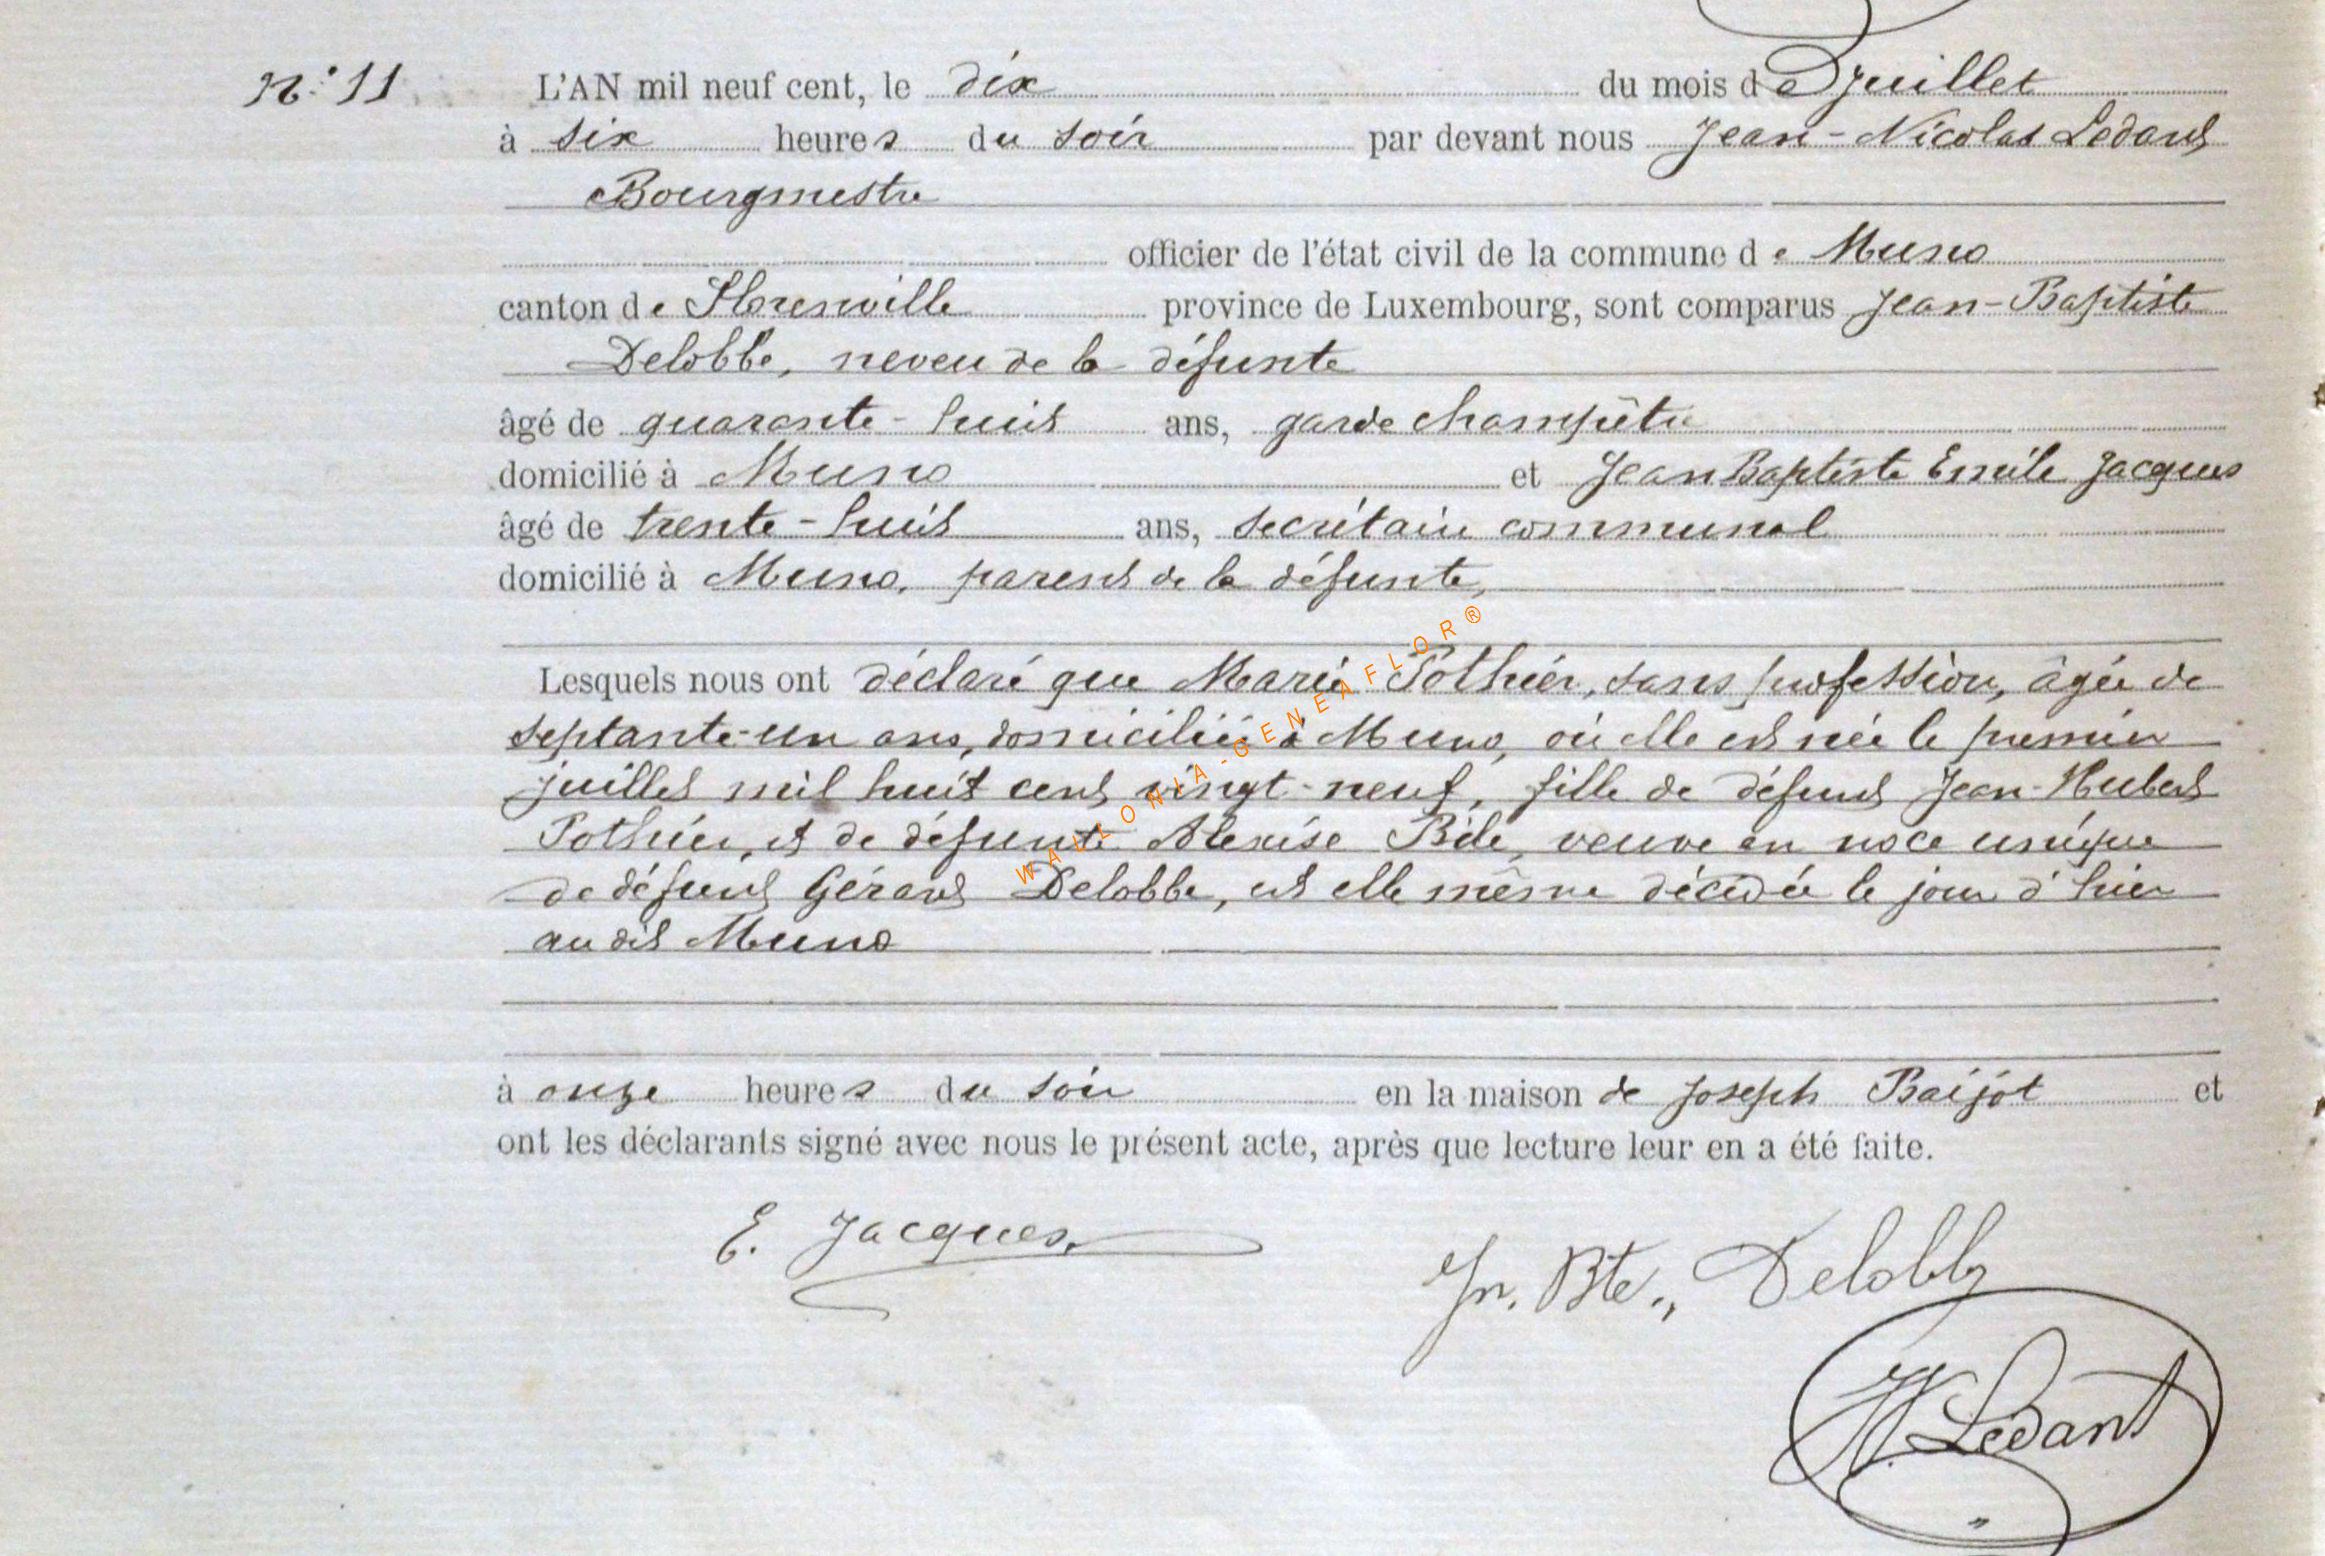 N° 11
L'AN mil neuf cent, le dix du mois de Juillet
à six heures du soir par devant nous Jean-Nicolas Ledant
Bourgmestre
officier de l'état civil de la commune de Muno
canton de Florenville province de Luxembourg, sont comparus Jean-Baptiste
Delobbe, neveu de la défunte
âgé de quarante-huit ans, garde champêtre
domicilié à Muno et Jean Baptiste Emile Jacques
âgé de trente-huit ans, secrétaire communal
domicilié à Muno, parent de la défunte,
Lesquels nous ont déclaré que Marie Pothier, sans profession, âgée de
septante-un ans, domiciliée à Muno, où elle est née le premier
juillet mil huit cent vingt-neuf, fille de défunt Jean-Hubert
Pothier, et de défunte Alexise Bile, veuve en noce unique
de défunt Gérard Delobbe, est elle même décédée le jour d'hier
au dit Muno
à onze heures du soir en la maison de Joseph Baijot et
ont les déclarants signé avec nous le présent acte, après que lecture leur en a été faite.
E. Jacques
Jn. Bte., Delobbe
JN Ledant
WALLONIA-GENEAFLOR®